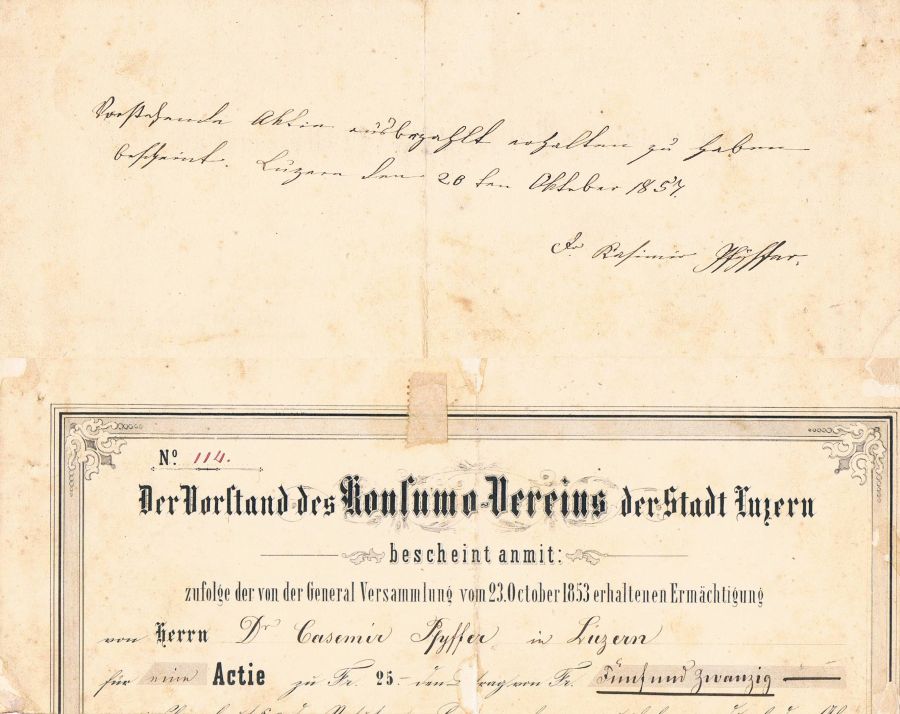 Vorstehende Aktie ausbezahlt erhalten zu haben
bescheint. Luzern den 20ten Oktober 1857.
Dr. Kasimir Pfyffer.
No. 114.
Der Vorstand des Konsumo-Vereins der Stadt Luzern
bescheint anmit:
zufolge der von der General Versammlung vom 23. October 1853 erhaltenen Ermächtigung
von Herrn Dr Casemir Pfyffer in Luzern
für eine Actie zu Fr. 25 – den trag von Fr. Fünf und Zwanzig